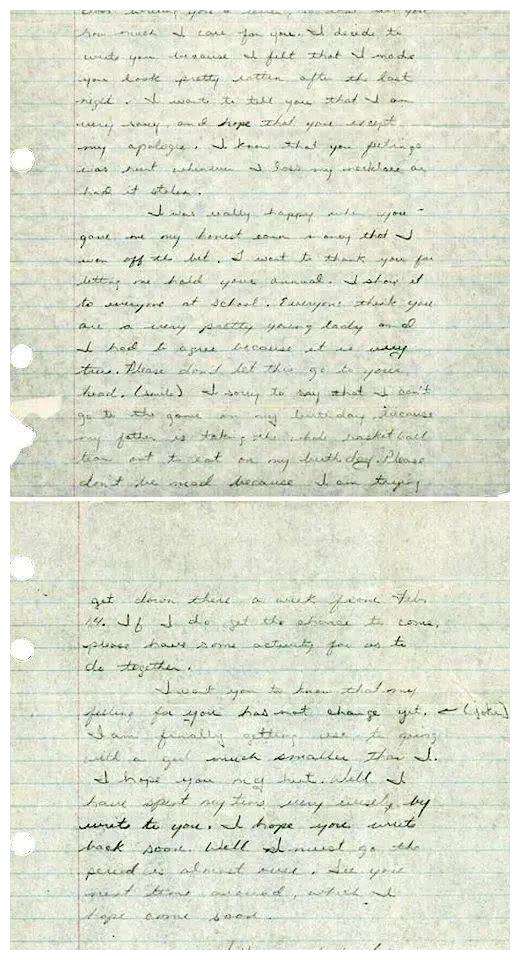 how much I care for you. I decide to
wrote you because I felt that I made
you look pretty rotten after the last
night. I want to tell you that I am
very sorry and hope that you except
my apologie. I know that you feelings
was hurt whenever I loss my necklace or
had it stolen.
I was really happy when you
gave me my honest earn money that I
won off the bet. I want to thank you for
letting me hold your annual. I show it
to everyone at school. Everyone think you
are a very pretty young lady and
I had to agree because it is very
true. Please don't let this go to your
head. (smile) I sorry to say that I can't
go to the game on my birthday because
my father is taking the basketball
team out to eat on my birthday. Please
don't be mad because I am trying
get down there a week from Feb.
14. If I do get the chance to come,
please have some activity for us to
do together.
I want you to know that my
feeling for you has not change yet. ← (joke)
I am finally getting use to going
with a girl much smaller than I.
I hope you my but. Well I
have spent my time very wisely by
wrote to you. I hope you wrote
back soon. Well I must go the
period is almost over. See you
next time around, which I
hope come soon.